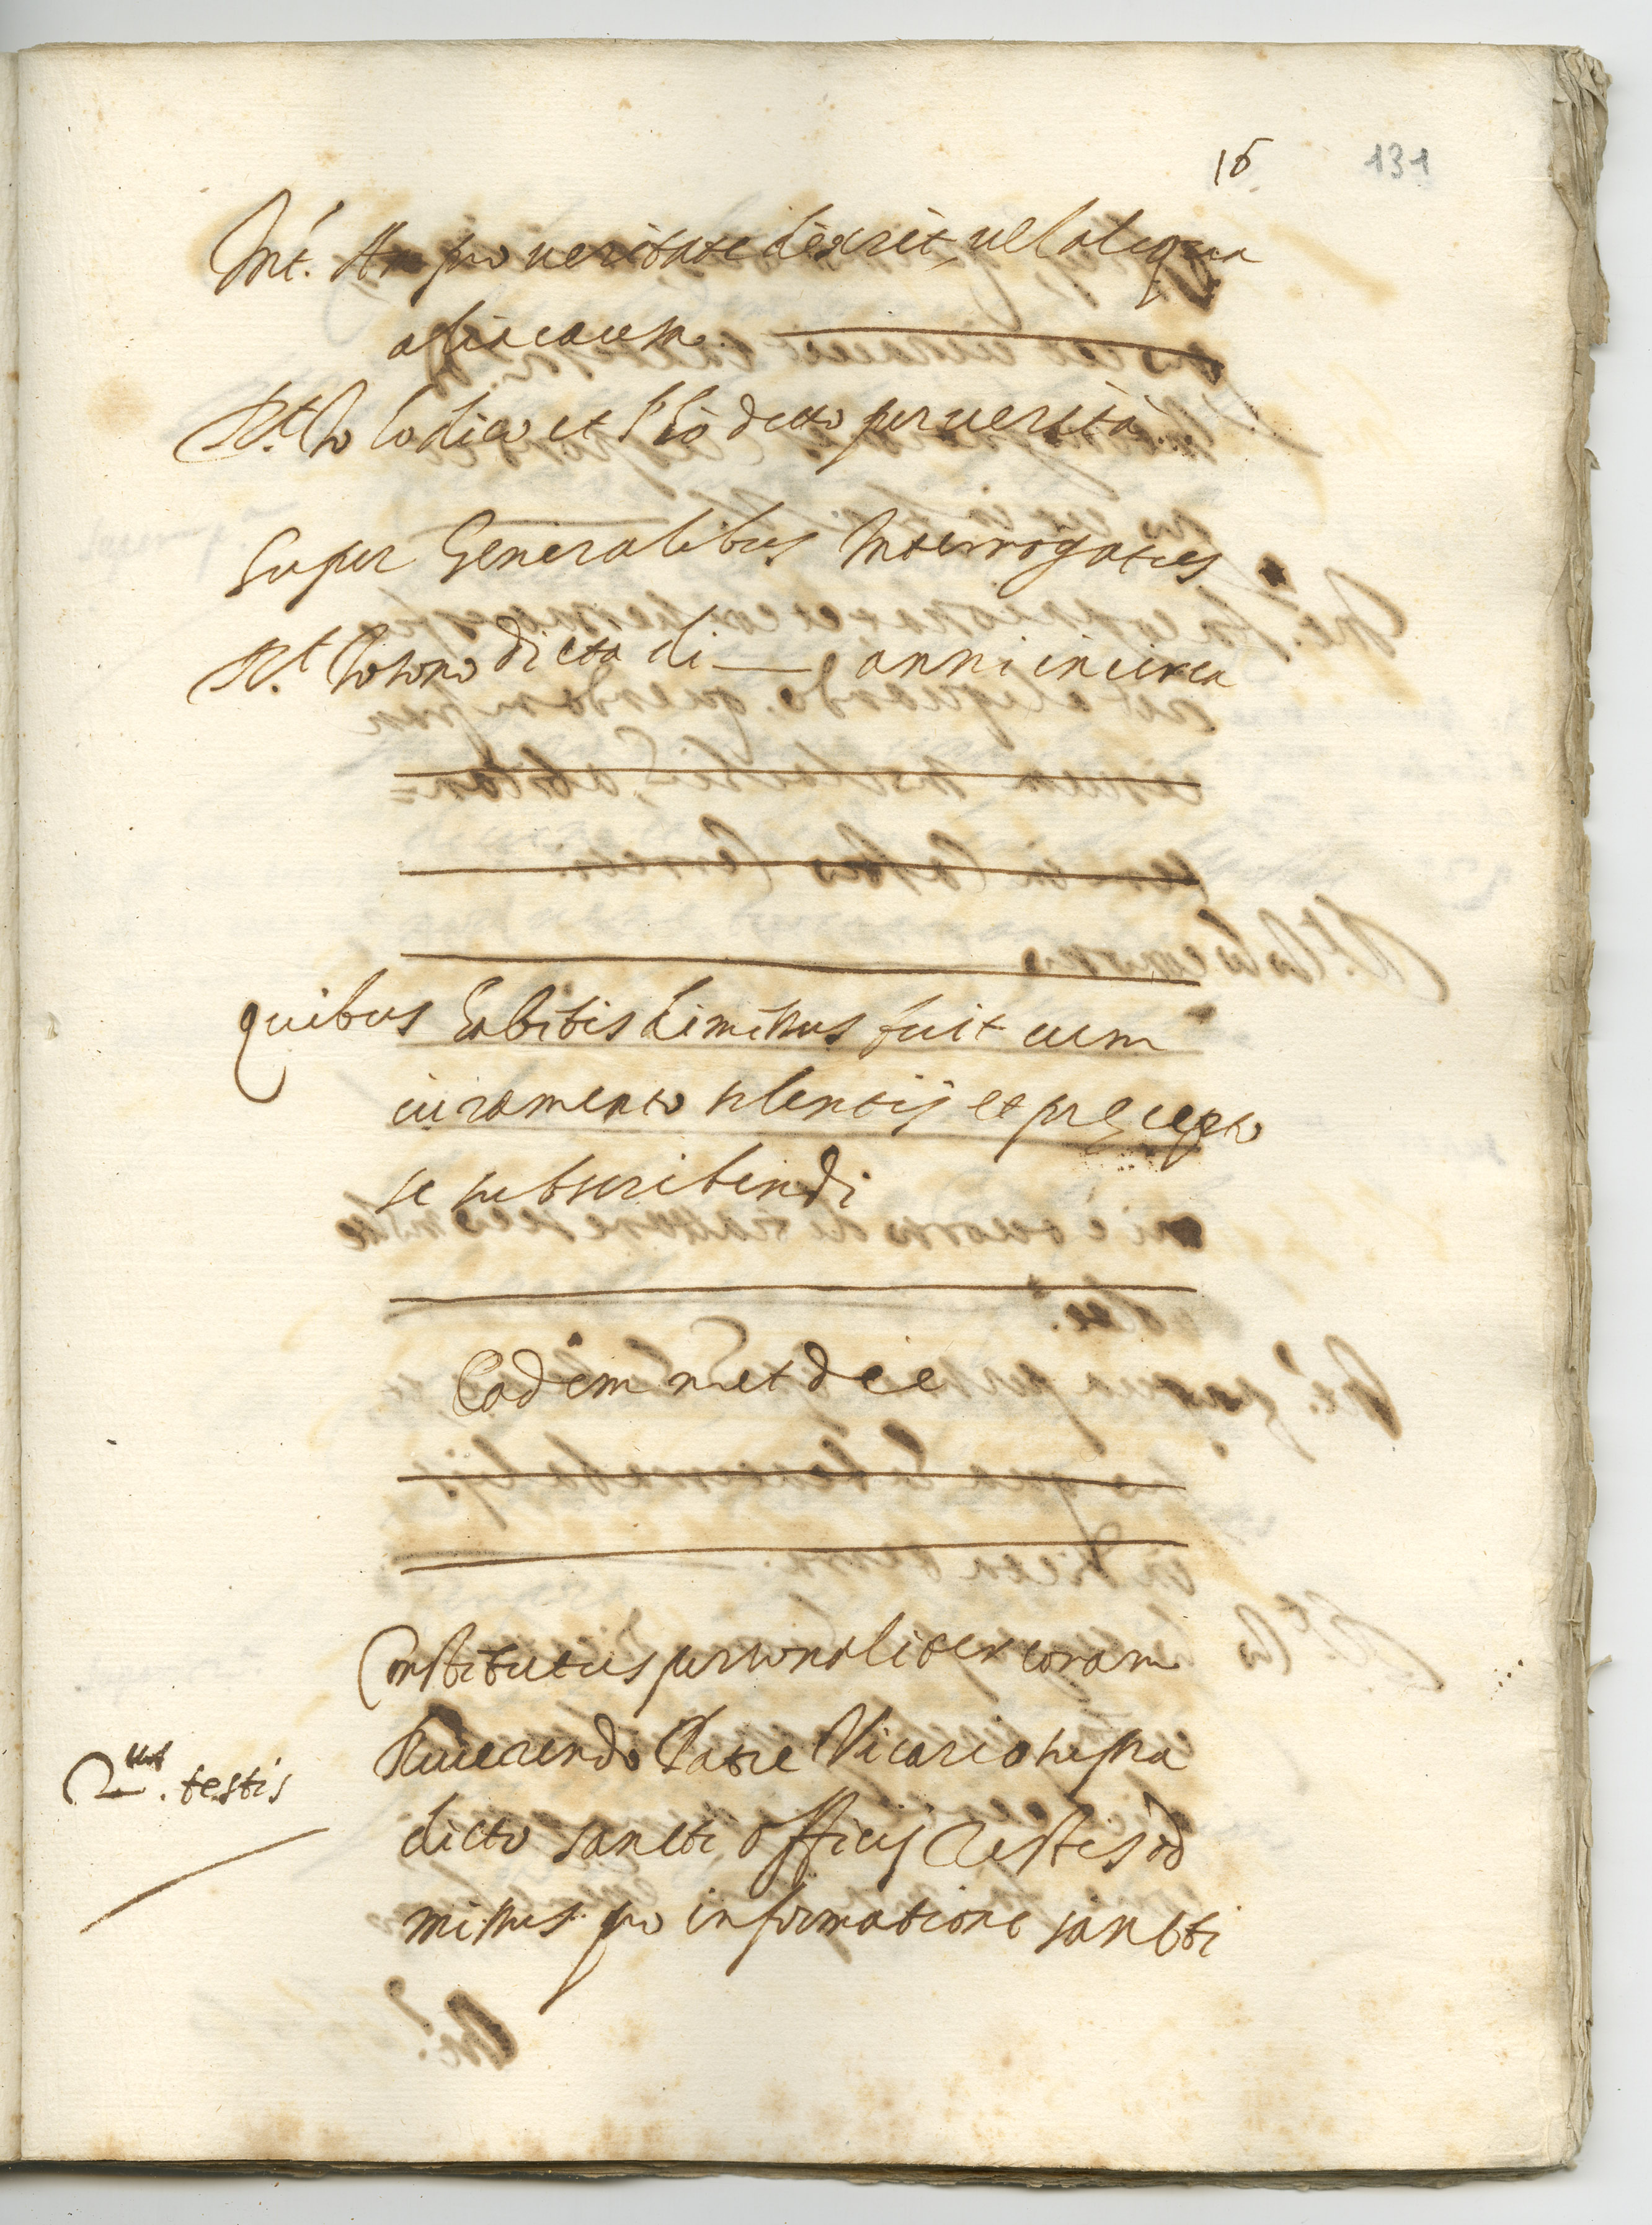 16 131
Int. An pro veritate dixerit, vel aliqua
alia causa.
Rt. Io lo dico et l'ho detto per verità.
Super Generalibus Interrogatus
Rt. Io sono di età di — anni in circa
Quibus habitis dimissus fuit cum
iuramento silentij et precepto
se subscribendi
Eadem met die
Constitutus personaliter coram
Reverendo Patre Vicario supra
2us. testis
dicto sancti officij testis ad
missus pro informatione sancti